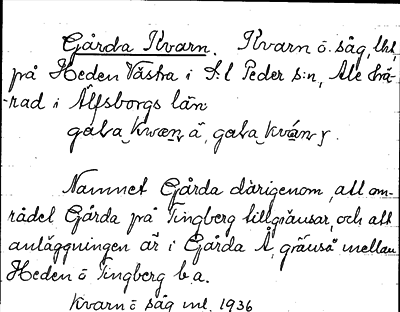 Gårda Kvarn. Kvarn o. såg, lht,
på Heden Västra i S:t Peder s:n, Ale hä-
rad i Älfsborgs län
Namnet Gårda därigenom, att om-
rådet Gårda på Tingberg tillgränsar, och att
anläggningen är i Gårda Å, gräns mellan
Heden o Tingberg b.a.
Kvarn o såg ml. 1936